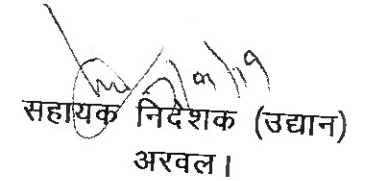 सहायक निदेशक (उद्यान)
अरवल।